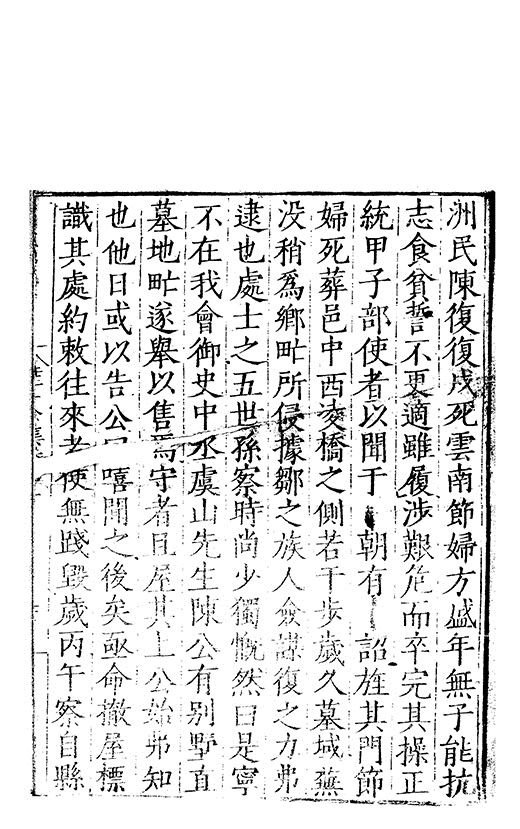 洲民陳復復戍死雲南節婦方盛年無子能抗
志食貧誓不裏適雖履涉艱危而卒完其操正
統甲子部使者以聞于朝有詔旌其門節
婦死葬邑中西夌橋之側若干步歲久墓域蕪
没稍爲鄉甿所侵據鄒之族人僉謀復之力弗
逮也處士之五世孫察時尚少獨慨然曰是寧
不在我會御史中丞虞山先生陳公有别墅直
墓地甿遂舉以售焉守者且屋其上公始弗知
也他日或以告公曰嘻聞之後矣亟命撤屋標
識其處約敕往來者使無踐毀歲丙午察自縣